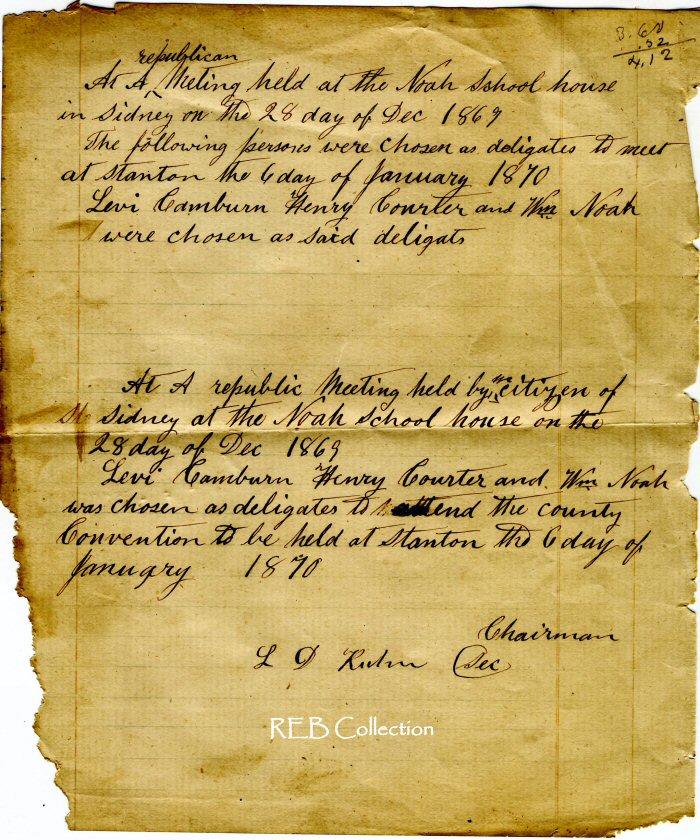 3.60
.52
4.12
republican
At A Meting held at the Noah School house
in Sidney on the 28 day of Dec 1869
The following persons were chosen as deligates to meet
at Stanton the 6 day of January 1870
Levi Camburn Henry Courter and Wm Noah
were chosen as said deligats
At A republic Meeting held by the citizen of
Sidney at the Noah School house on the
28 day of Dec 1869
Levi Camburn Henry Courter and Wm Noah
was chosen as deligates to attend the county
Convention to be held at Stanton the 6 day of
January 1870
Chairman
L D Sec
REB Collection